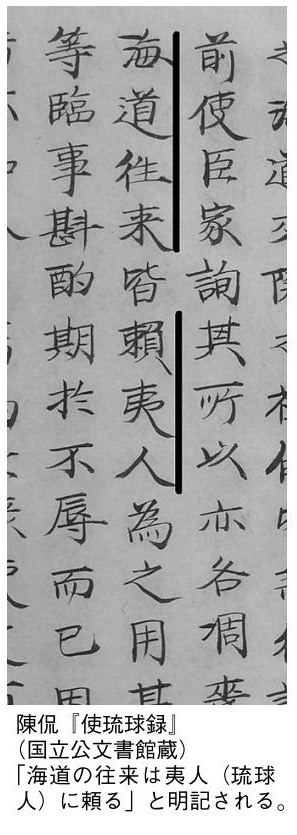 前使臣家詢其所以亦各凋喪
海道往来皆賴夷人為之用其
等臨事斟酌期於不辱而已因
陳侃『使琉球録』
（国立公文書館蔵）
「海道の往来は夷人（琉球
人）に頼る」と明記される。